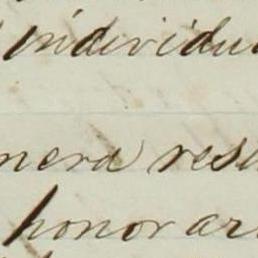 individu
nera resu
honor ar